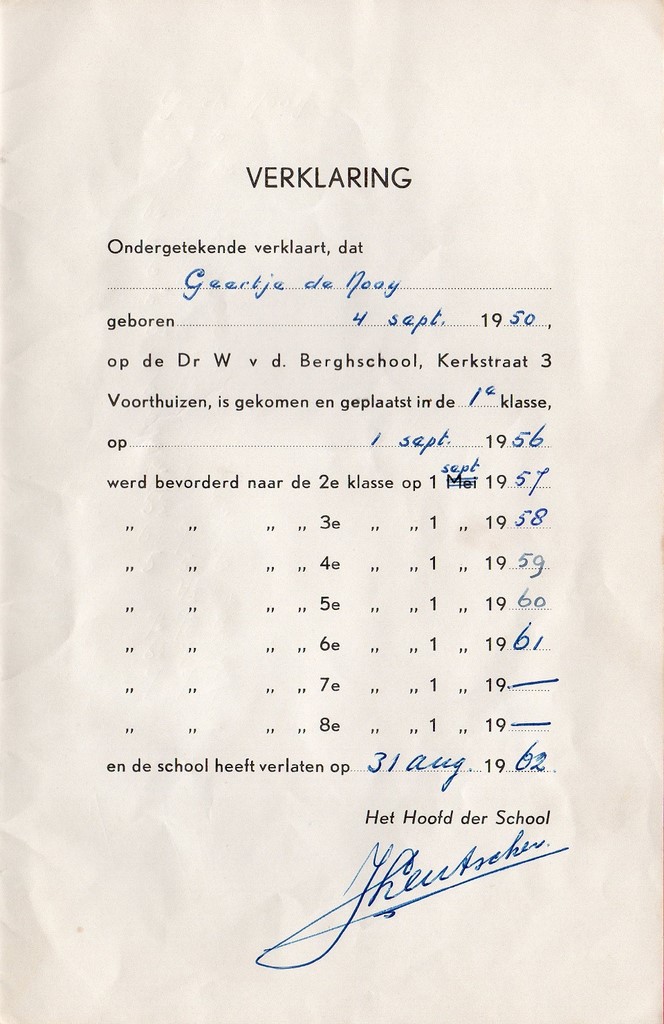 VERKLARING
Ondergetekende verklaart, dat
Geertje de Nooy
geboren 4 sept. 1950,
op de Dr W v d. Berghschool, Kerkstraat 3
Voorthuizen, is gekomen en geplaatst in de 1e klasse,
op 1 sept. 1956
sept
werd bevorderd naar de 2e klasse op 1 Mei 1957
„ „ „ „ 3e „ „ 1 „ 1958
„ „ „ „ 4e „ „ 1 „ 1959
„ „ „ „ 5e „ „ 1 „ 1960
„ „ „ „ 6e „ „ 1 „ 1961
„ „ „ „ 7e „ „ 1 „ 19—
„ „ „ „ 8e „ „ 1 „ 19—
en de school heeft verlaten op 31 aug. 1962.
Het Hoofd der School